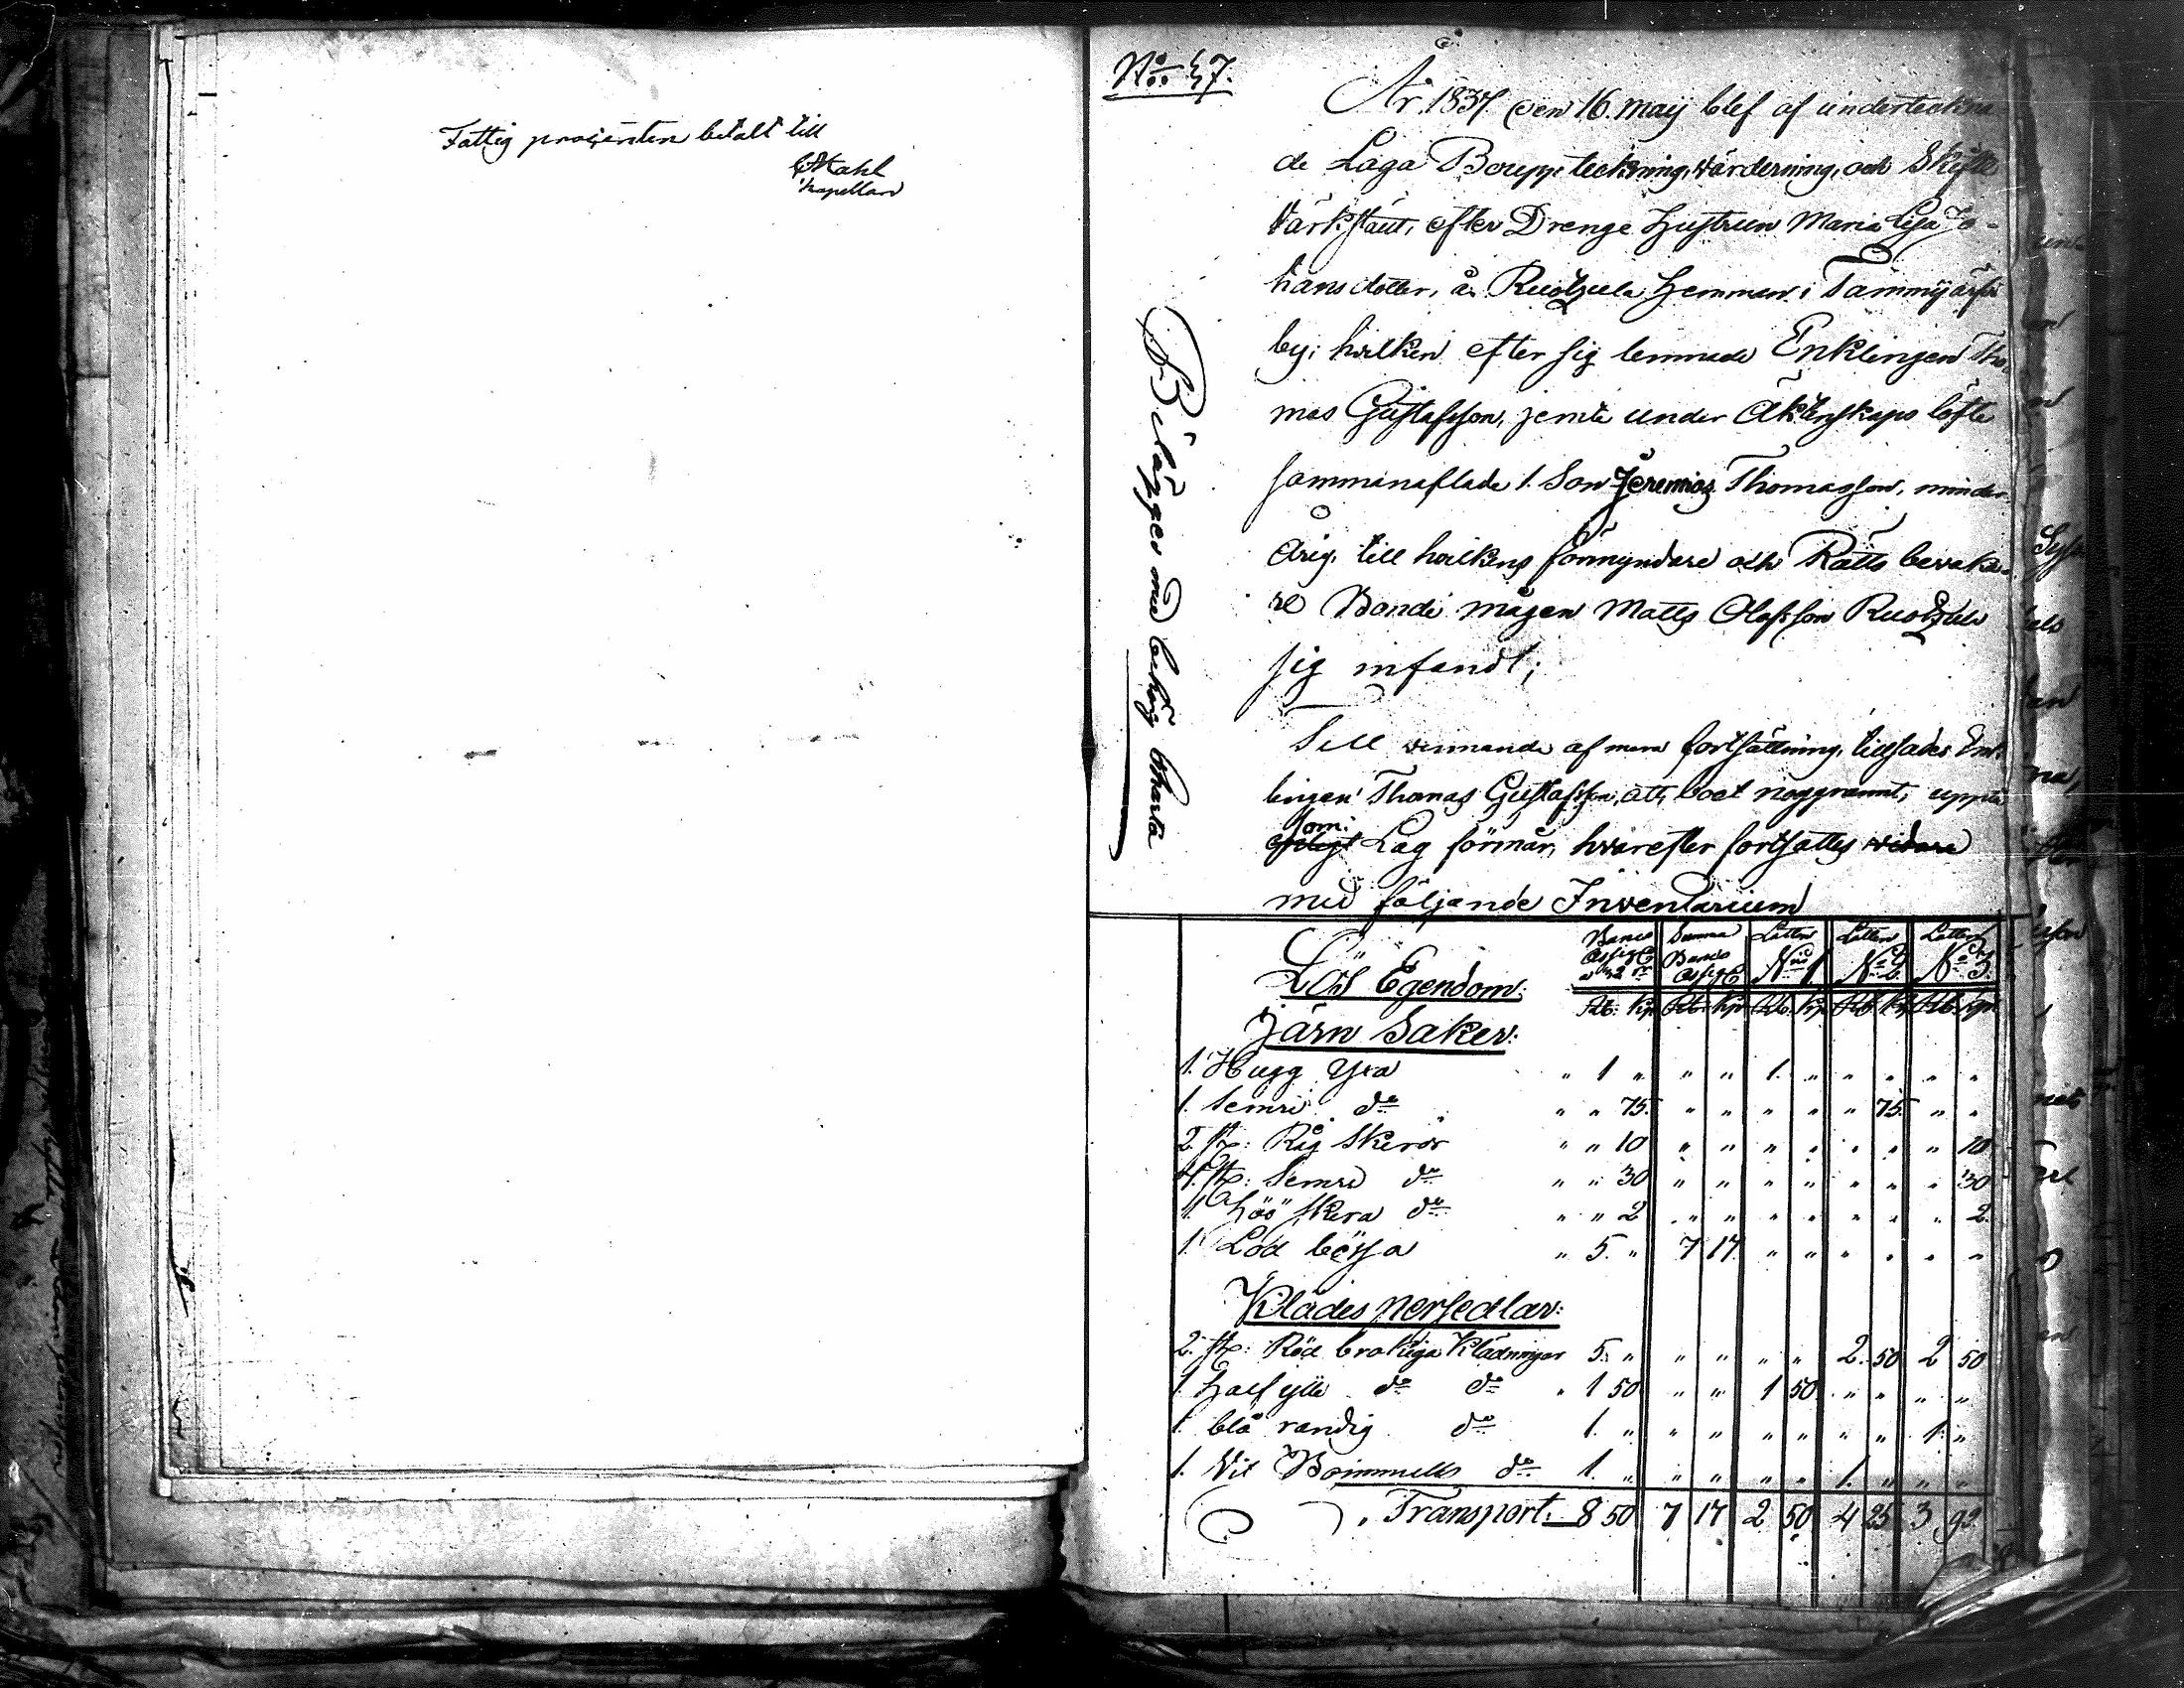 Fattig procenten betalt till
Stahl
Kapellan
No 47.
År 1837 den 16. maij blef af underteckna
de Laga Bouppteckning, värdering, och Skifte
värkstäut, efter Drenge Hustrun Maria Lisa Jo-
hansdotter, å Ruotzula Hemman i Tammijärfvi
by; hvilken efter sig lemnade Enklingen Tho-
mas Gustafsson, jemte under Äktenskaps löfte
sammanaflade 1. Son Jeremias Thomasson, minder
årig, till hvilkens förmyndare och Rätts bevaka-
re Bonde mågen Matts Olofsson Ruotzula
sig infandt;
Till vinnande af mera fortsättning, tillsades Enk-
lingen Thomas Gustafsson, att boet noggrannt, uppte
som
Lag förmår, hvarefter fortsattes vidare
med följande Inventarium
Bilägges med behörig Charta
Lös Egendom:
Banco Assig: a 32 | Summa Banco Assig | Lotten No 1. | Lotten No 2 | Lotten No 3.
Rb. Kp | Rb. Kp | Rb. Kp | Rb. Kp | Rb. Kp
Järn Saker:
1. Hugg Yxa " 1 " " " 1. " " " " "
1. Semri do " " 75. " " " " " 75 " "
2. st: Råg Skeror " " 10 " " " " " " " 10
4. st: Semre do " " 30 " " " " " " " 30
1. Höö skera do " " 2 " " " " " " " 2.
1. Lod bössa " 5. " 7 17 " " " " " "
Klädes persedlar:
2. st: Röd brokiga Klädningar 5. " " " " " 2. 50 2 50
1. Half ylle do do " 1 50 " " 1 50 " " " "
1. blå randig do 1. " " " " " " " 1. "
1. Vit Bommulls do 1. " " " " " 1. " " "
Transport: 8 50 7 17 2 50 4 25 3 92